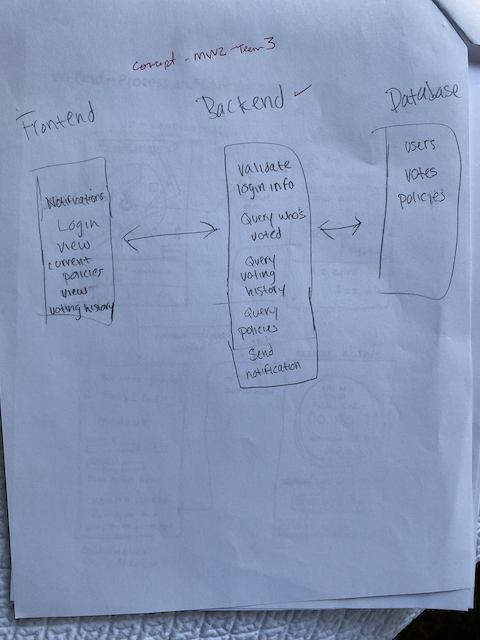 concept - MW2 - Team 3
Frontend
Backend ✓
Database
Notifications
Login
view
current
policies
view
voting history
validate
login info
Query who's
voted
Query
voting
history
Query
policies
Send
notification
users
votes
policies